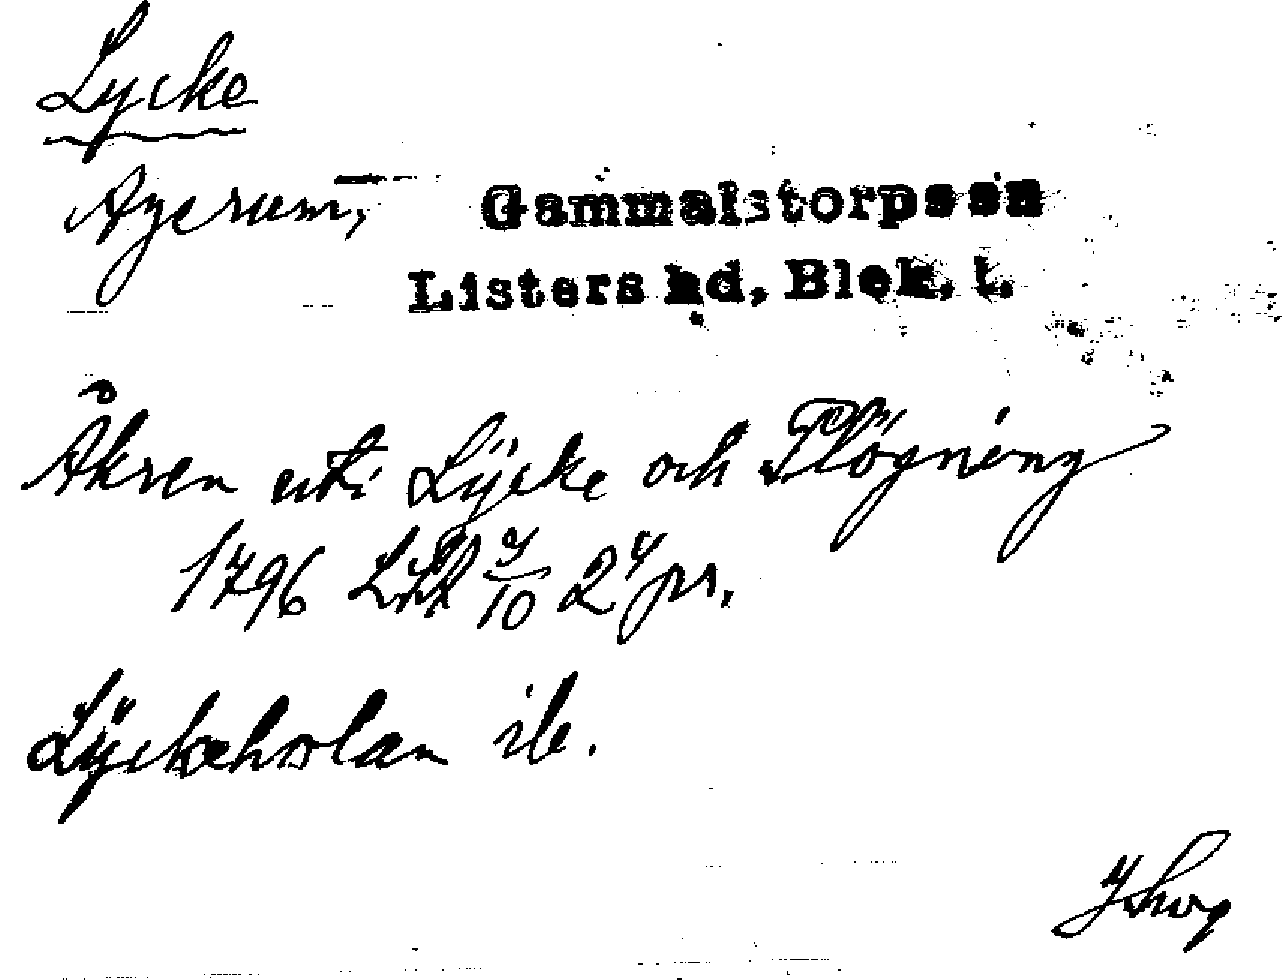 Lycke
Agerum, Gammalstorps sn
Listers hd, Blek. l.
Åkren uti Lÿcke och Plögning
1796 Lskt 9/10 2 4 pr.
Lÿckeholan ib.